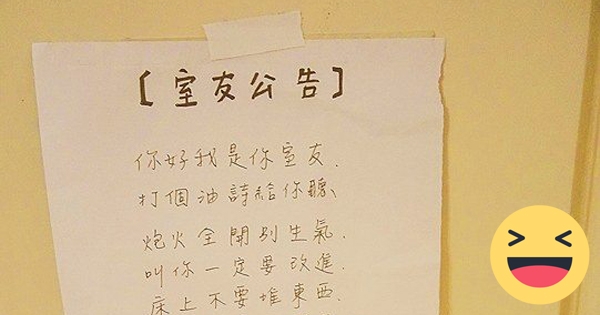 【室友公告】
你好我是你室友.
打個油詩給你聽、
炮火全開別生氣.
叫你一定要改進.
床上不要堆東西.